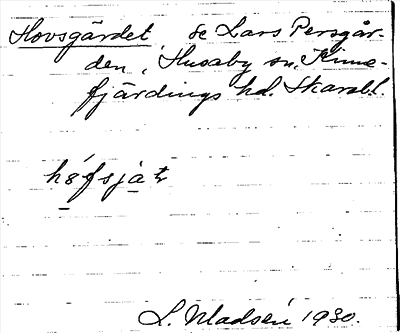 Hovsgärdet, se Lars Persgår-
den, Husaby sn, Kinne-
fjärdings hd. Skarabl.
hófsjàt
L. Madsén 1930.